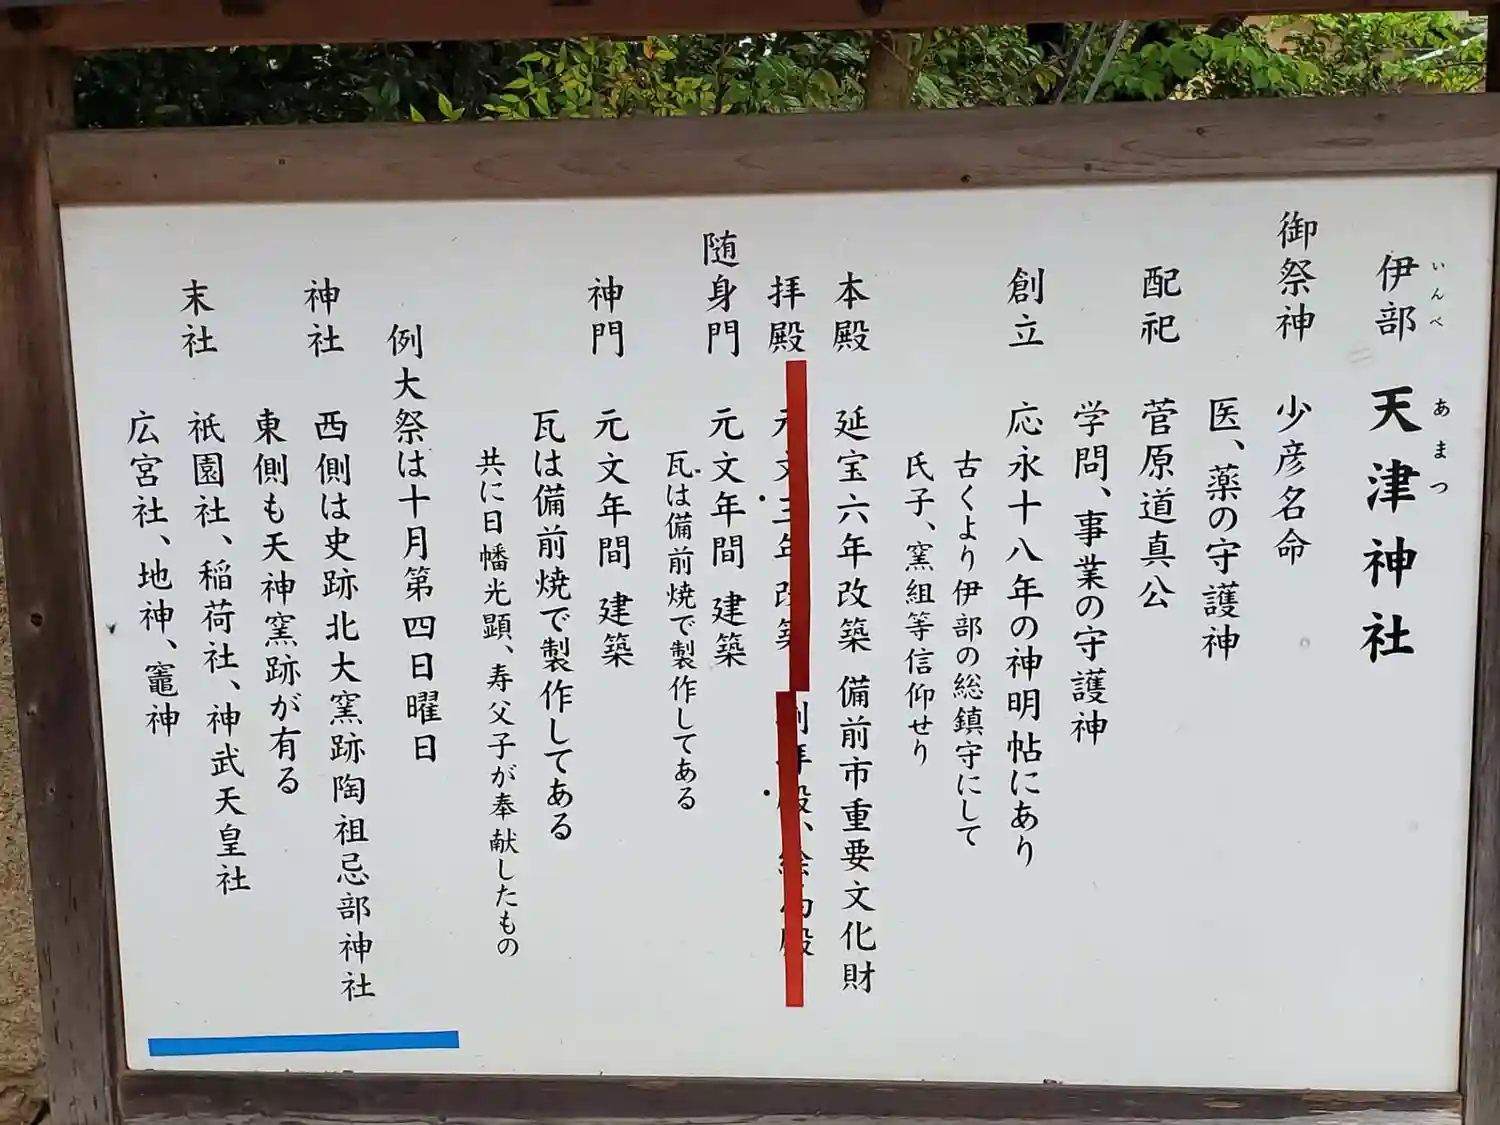 伊部 天津神社
いんべ あまつ
御祭神 少彦名命
医、薬の守護神
配祀 菅原道真公
学問、事業の守護神
創立 応永十八年の神明帖にあり
古くより伊部の総鎮守にして
氏子、窯組等信仰せり
本殿 延宝六年改築 備前市重要文化財
拝殿 元文三年改築
随身門 元文年間 建築
瓦は備前焼で製作してある
神門 元文年間 建築
瓦は備前焼で製作してある
共に日幡光顕、寿父子が奉献したもの
例大祭は十月第四日曜日
神社 西側は史跡北大窯跡陶祖忌部神社
東側も天神窯跡が有る
末社 祇園社、稲荷社、神武天皇社
広宮社、地神、竈神